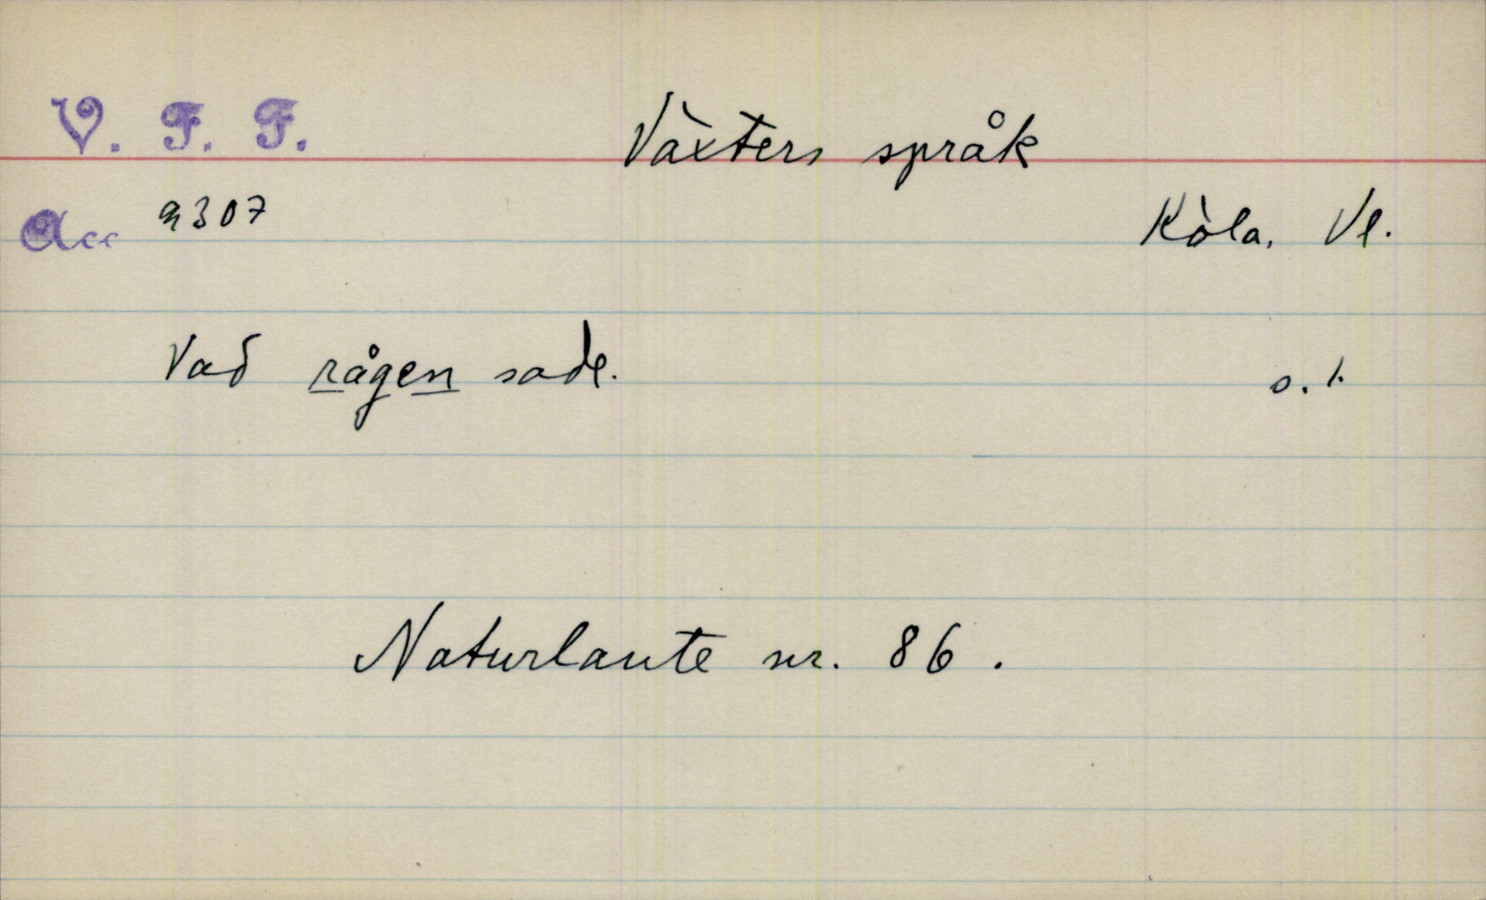 V. F. F.
Växters språk
Acc 2307
Köla. Vl.
Vad rågen sade.
s. 1.
Naturlaute nr. 86.